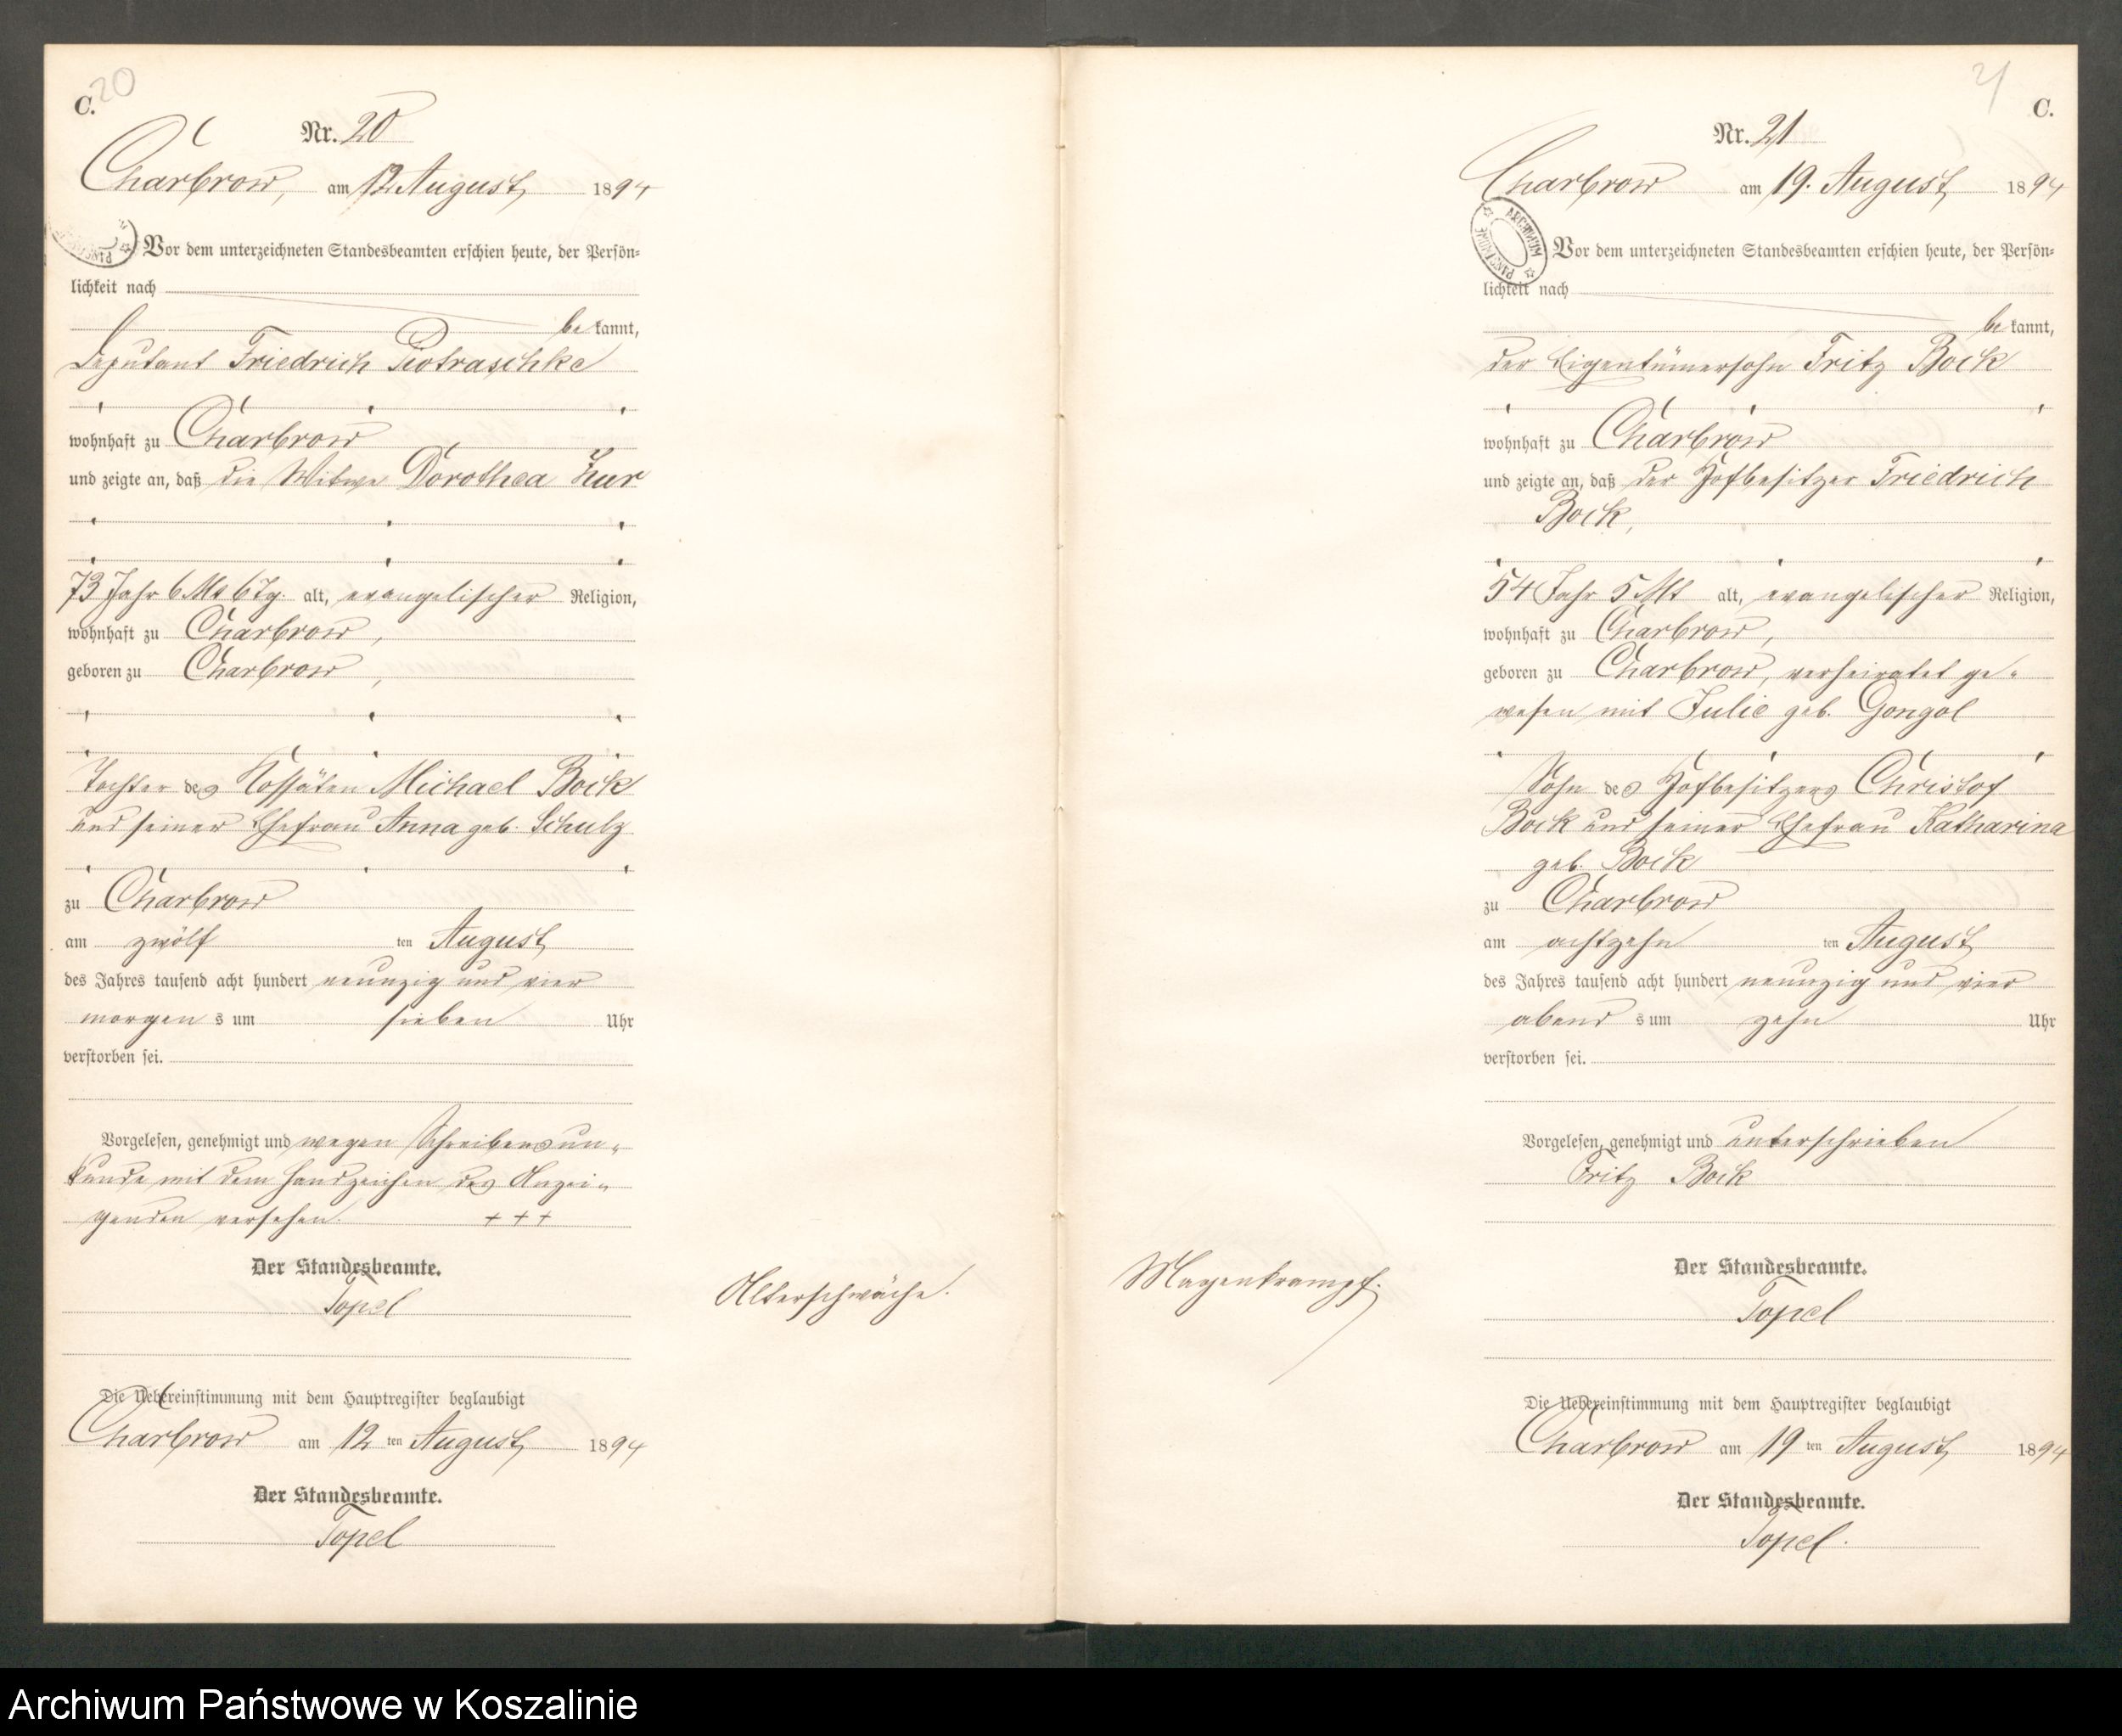 20
C.
Nr. 20
Charbrow, am 12 August 1894
Vor dem unterzeichneten Standesbeamten erschien heute, der Persön-
lichkeit nach
be kannt,
Deputant Friedrich Piotraschke
wohnhaft zu Charbrow
und zeigte an, daß die Witwe Dorothea Zur
73 Jahr 6 Mt 6 Tg. alt, evangelischer Religion,
wohnhaft zu Charbrow,
geboren zu Charbrow,
Tochter des Kossäten Michael Bock
und seiner Ehefrau Anna geb. Schulz
zu Charbrow
am zwölf ten August
des Jahres tausend acht hundert neunzig und vier
morgen s um sieben Uhr
verstorben sei.
Vorgelesen, genehmigt und wegen Schreibensun-
kunde mit dem Handzeichen des Anzei-
genden versehen. + + +
Der Standesbeamte.
Topel
Altersschwäche.
Die Uebereinstimmung mit dem Hauptregister beglaubigt
Charbrow am 12 ten August 1894
Der Standesbeamte.
Topel
21
C.
Nr. 21
Charbrow am 19. August 1894
ARCHIWUM PAŃSTWOWE
Vor dem unterzeichneten Standesbeamten erschien heute, der Persön-
lichkeit nach
be kannt,
der Eigentümersohn Fritz Bock
wohnhaft zu Charbrow
und zeigte an, daß der Hofbesitzer Friedrich
Bock,
54 Jahr 5 Mt alt, evangelischer Religion,
wohnhaft zu Charbrow,
geboren zu Charbrow, verheiratet ge-
wesen mit Julie geb. Gongol
Sohn des Hofbesitzers Christof
Bock und seiner Ehefrau Katharina
geb. Bock
zu Charbrow
am achtzehn ten August
des Jahres tausend acht hundert neunzig und vier
abend s um zehn Uhr
verstorben sei.
Vorgelesen, genehmigt und unterschrieben
Fritz Bock
Der Standesbeamte.
Topel
Magenkrampf.
Die Uebereinstimmung mit dem Hauptregister beglaubigt
Charbrow am 19 ten August 1894
Der Standesbeamte.
Topel.
Archiwum Państwowe w Koszalinie